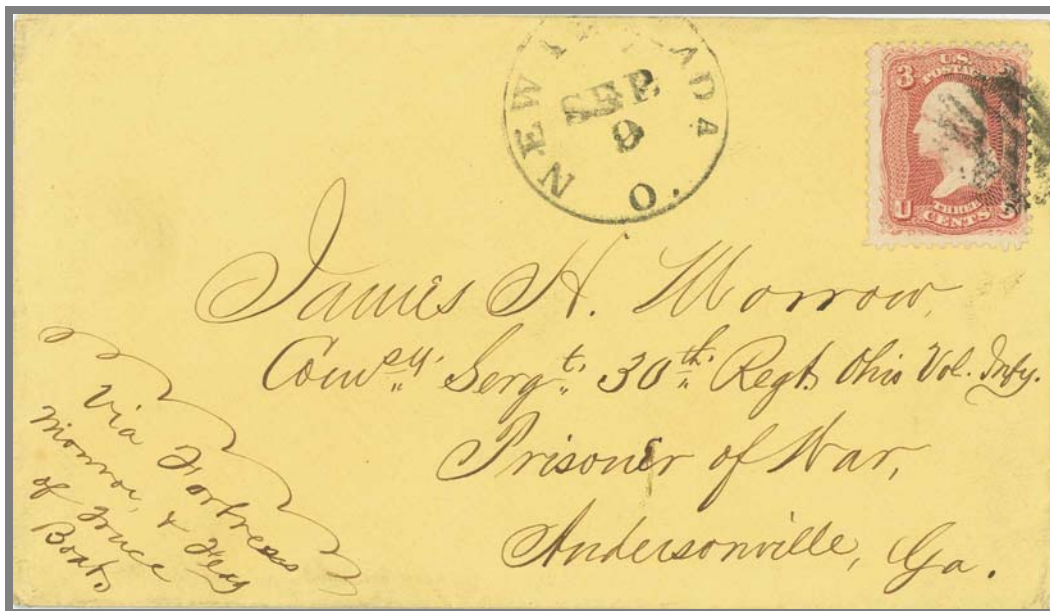 NEW
SEP.
9
O.
3
U.S.
POSTAGE
U S
THREE
CENTS
James H. Morrow,
Comsy. Sergt. 30th. Regt. Ohio Vol. Infy.
Prisoner of War,
Andersonville, Ga.
Via Fortress
Monroe, & Flag
of Truce
Boat,